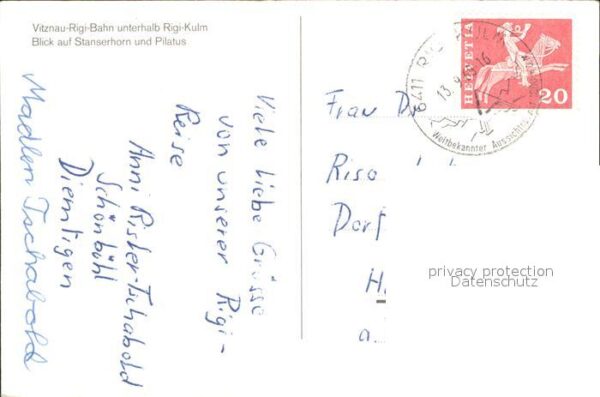 Vitznau-Rigi-Bahn unterhalb Rigi-Kulm
Blick auf Stanserhorn und Pilatus
Viele liebe Grüsse
von unserer Rigi-
Reise
Anni Rister-Tschabold
Schönbühl
Diemtigen
Madlen Tschabold
HELVETIA
20
6411 RIGI KULM
13.9.
Weltbekannter Aussichts
Frau D
Riso
Dorf
H.
a.
privacy protection
Datenschutz